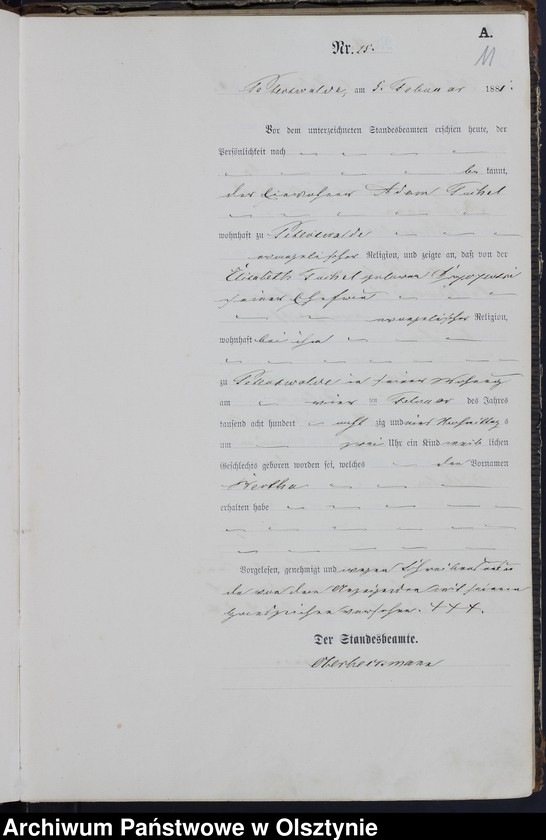 A.
11
Nr. 15.
Peterswalde, am 5. Februar 1881.
Vor dem unterzeichneten Standesbeamten erschien heute, der
Persönlichkeit nach
be kannt,
der Einwohner Adam
wohnhaft zu Peterswalde
evangelischer Religion, und zeigte an, daß von der
Elisabeth geborenen
seiner Ehefrau
evangelischer Religion,
wohnhaft bei ihm
zu Peterswalde in seiner Wohnung
am vier ten Februar des Jahres
tausend acht hundert acht zig und eins Nachmittag s
um zwei Uhr ein Kind weib lichen
Geschlechts geboren worden sei, welches den Vornamen
Bertha
erhalten habe
Vorgelesen, genehmigt und wegen Schreibens
de von dem Anzeigenden mit seinem
Handzeichen versehen. +++.
Der Standesbeamte.
Archiwum Państwowe w Olsztynie